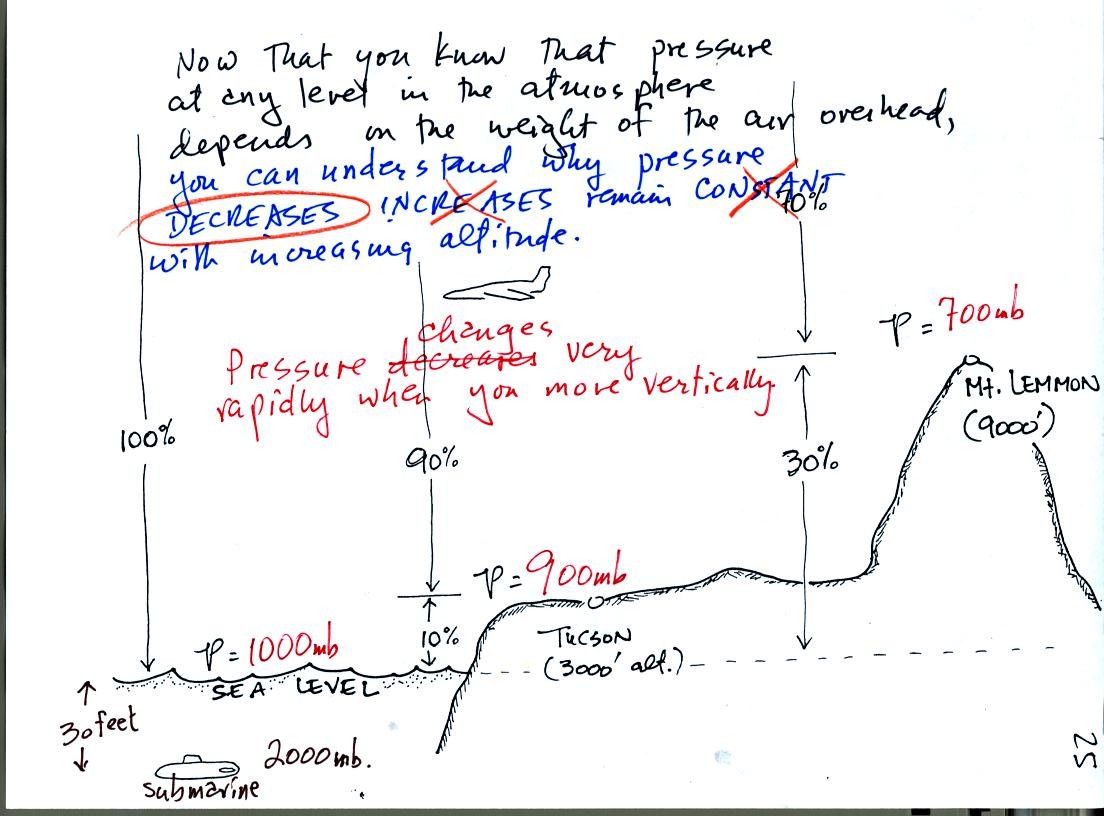 Now That you know That pressure
at any level in the atmosphere
depends on the weight of the air overhead,
you can understand why pressure
DECREASES INCREASES remain CONSTANT
with increasing altitude.
70%
changes
Pressure decreases very
rapidly when you move vertically
P = 700mb
Mt. LEMMON
(9000')
100%
90%
30%
P = 900mb
10%
TUCSON
(3000' alt.)
P = 1000mb
SEA LEVEL
30 feet
2000mb.
submarine
25